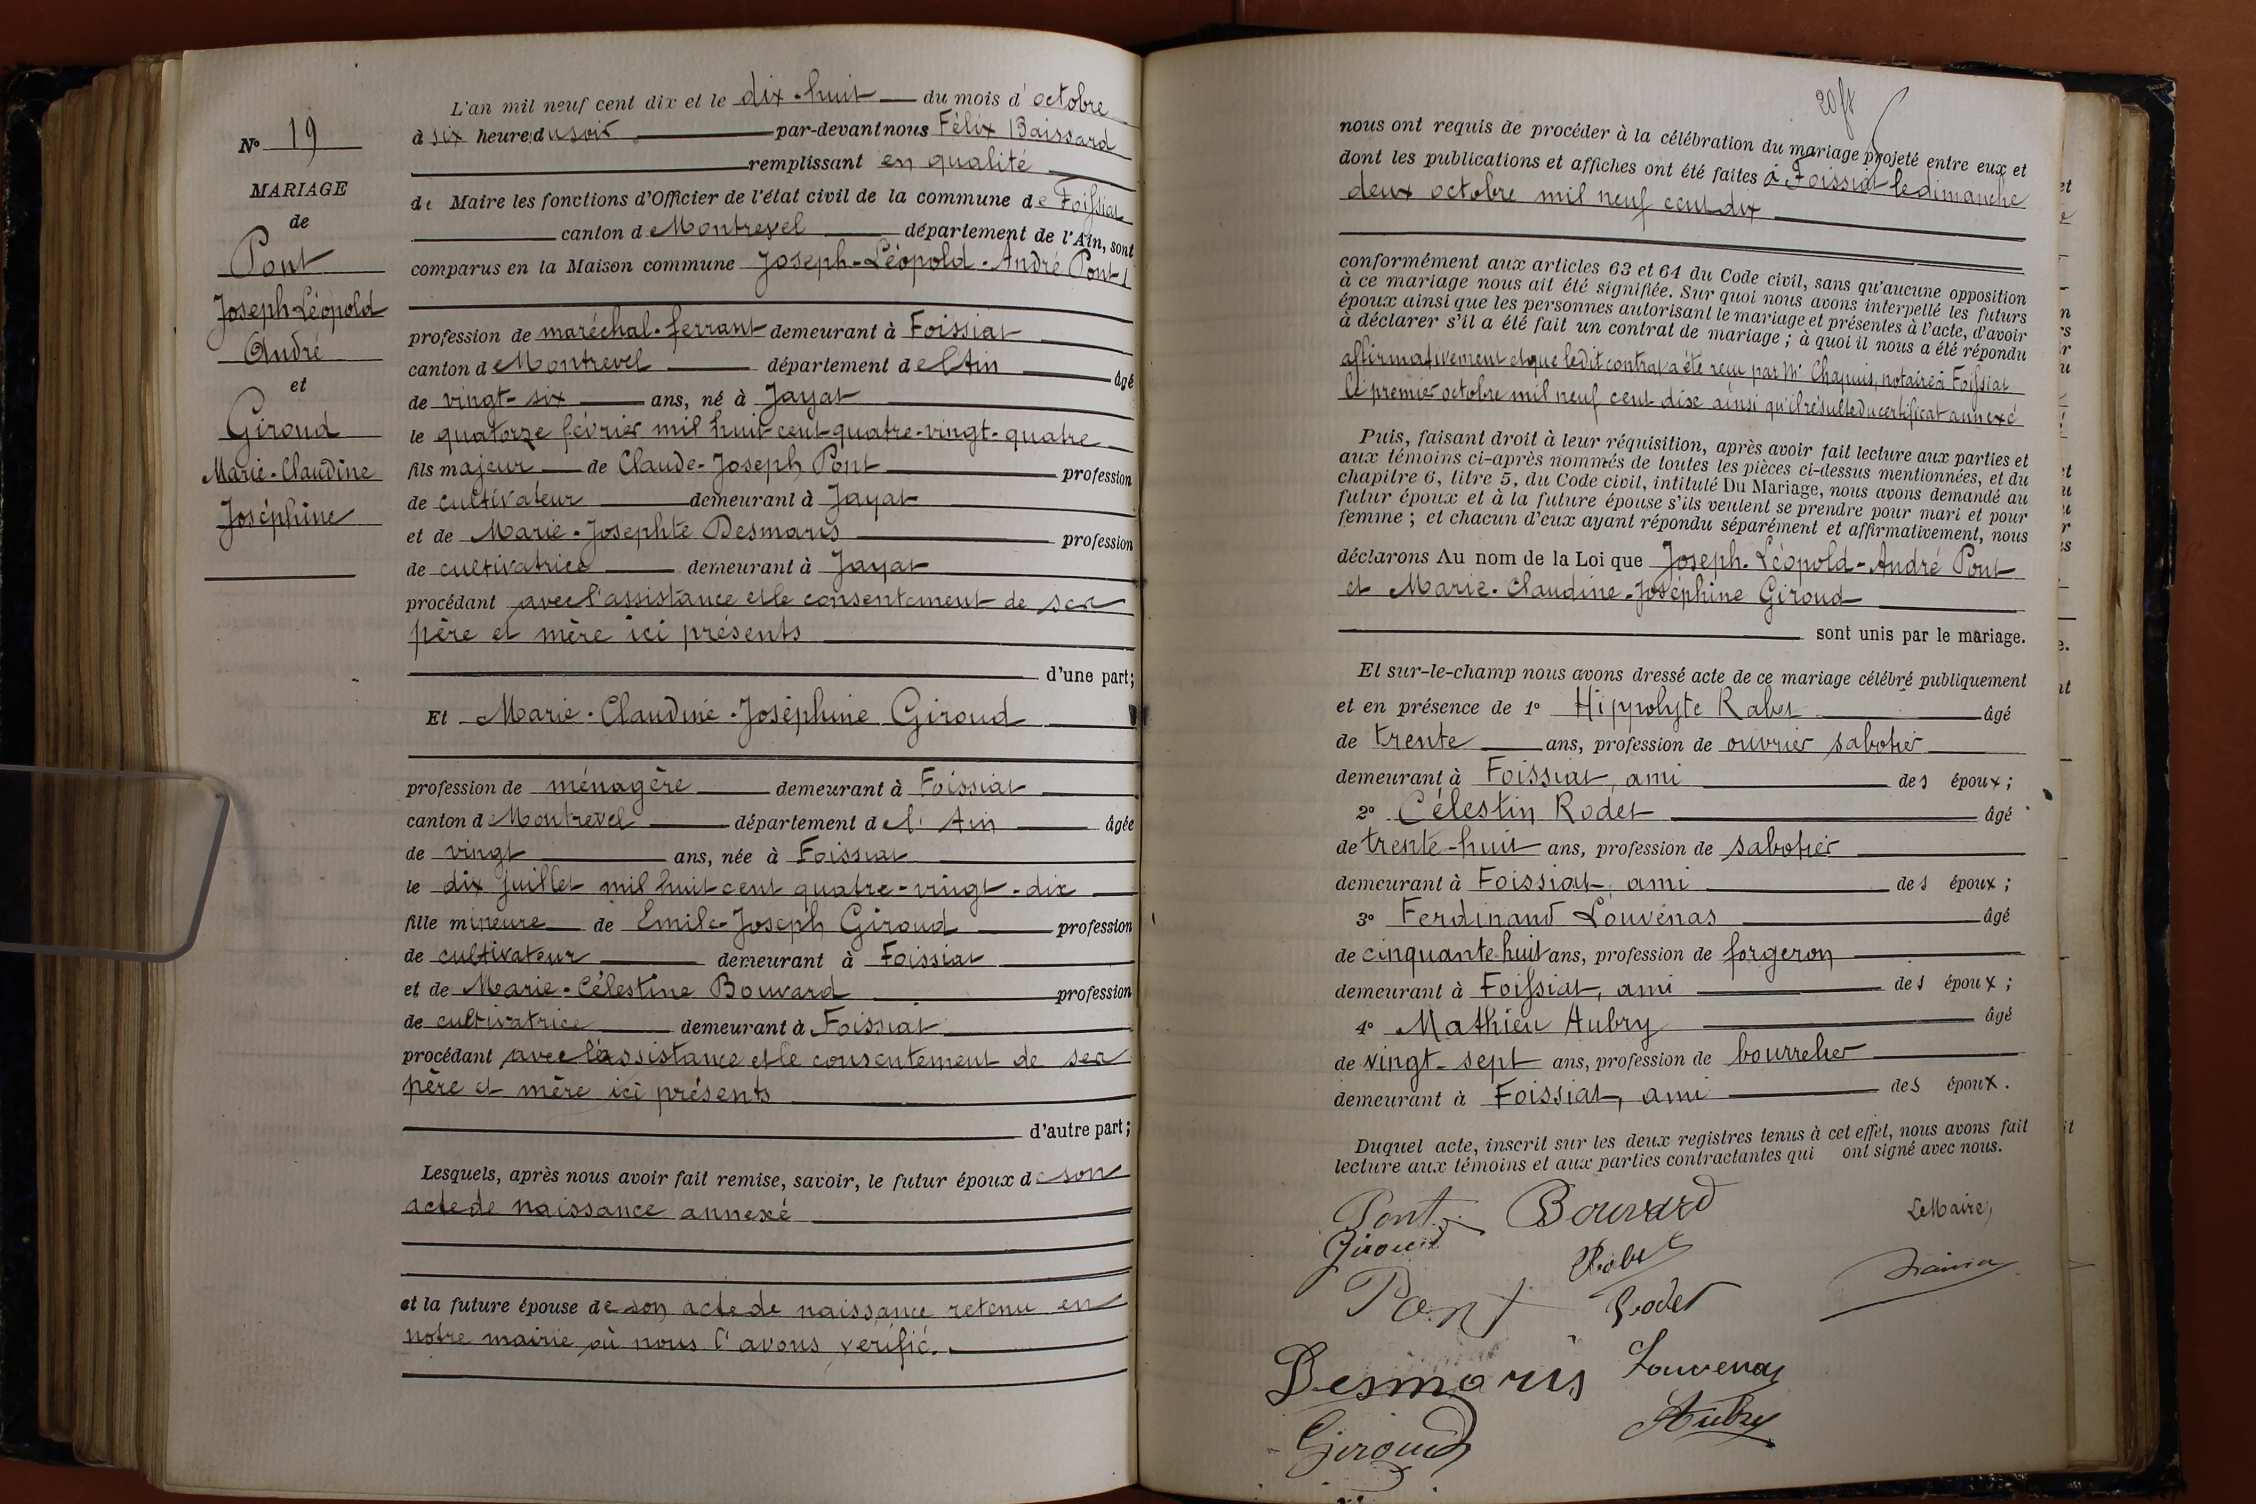 N° 19
MARIAGE
de
Pont
Joseph-Léopold
André
et
Giroud
Marie-Claudine
Joséphine
L'an mil neuf cent dix et le dix-huit du mois d'octobre
à six heure du soir par-devant nous Félix Baissard
remplissant en qualité
de Maire les fonctions d'Officier de l'état civil de la commune de Foissiat
canton de Montrevel département de l'Ain, sont
comparus en la Maison commune Joseph-Léopold-André Pont
profession de maréchal-ferrant demeurant à Foissiat
canton de Montrevel département de l'Ain âgé
de vingt-six ans, né à Jayat
le quatorze février mil huit cent quatre-vingt-quatre
fils majeur de Claude-Joseph Pont profession
de cultivateur demeurant à Jayat
et de Marie-Josephte Desmaris profession
de cultivatrice demeurant à Jayat
procédant avec l'assistance et le consentement de ses
père et mère ici présents
d'une part;
Et Marie-Claudine-Joséphine Giroud
profession de ménagère demeurant à Foissiat
canton de Montrevel département de l'Ain âgée
de vingt ans, née à Foissiat
le dix juillet mil huit cent quatre-vingt-dix
fille mineure de Emile-Joseph Giroud profession
de cultivateur demeurant à Foissiat
et de Marie-Célestine Bouvard profession
de cultivatrice demeurant à Foissiat
procédant avec l'assistance et le consentement de ses
père et mère ici présents
d'autre part;
Lesquels, après nous avoir fait remise, savoir, le futur époux de son
acte de naissance annexé
et la future épouse de son acte de naissance retenu en
notre mairie où nous l'avons vérifié.
nous ont requis de procéder à la célébration du mariage projeté entre eux et
dont les publications et affiches ont été faites à Foissiat le dimanche
deux octobre mil neuf cent dix
conformément aux articles 63 et 64 du Code civil, sans qu'aucune opposition
à ce mariage nous ait été signifiée. Sur quoi nous avons interpellé les futurs
époux ainsi que les personnes autorisant le mariage et présentes à l'acte, d'avoir
à déclarer s'il a été fait un contrat de mariage; à quoi il nous a été répondu
affirmativement et que ledit contrat a été reçu par Mr Chapuis, notaire à Foissiat
le premier octobre mil neuf cent dix ainsi qu'il résulte du certificat annexé
Puis, faisant droit à leur réquisition, après avoir fait lecture aux parties et
aux témoins ci-après nommés de toutes les pièces ci-dessus mentionnées, et du
chapitre 6, titre 5, du Code civil, intitulé Du Mariage, nous avons demandé au
futur époux et à la future épouse s'ils veulent se prendre pour mari et pour
femme; et chacun d'eux ayant répondu séparément et affirmativement, nous
déclarons Au nom de la Loi que Joseph-Léopold-André Pont
et Marie-Claudine-Joséphine Giroud
sont unis par le mariage.
Et sur-le-champ nous avons dressé acte de ce mariage célébré publiquement
et en présence de 1° Hippolyte Rabet âgé
de trente ans, profession de ouvrier sabotier
demeurant à Foissiat, ami des époux;
2° Célestin Rodet âgé
de trente-huit ans, profession de sabotier
demeurant à Foissiat, ami des époux;
3° Ferdinand Louvenas âgé
de cinquante-huit ans, profession de forgeron
demeurant à Foissiat, ami des époux;
4° Mathieu Aubry âgé
de vingt-sept ans, profession de bourrelier
demeurant à Foissiat, ami des époux.
Duquel acte, inscrit sur les deux registres tenus à cet effet, nous avons fait
lecture aux témoins et aux parties contractantes qui ont signé avec nous.
Pont Bouvard Le Maire,
Giroud Rabet
Pont Rodet
Desmaris Louvenas
Giroud Aubry